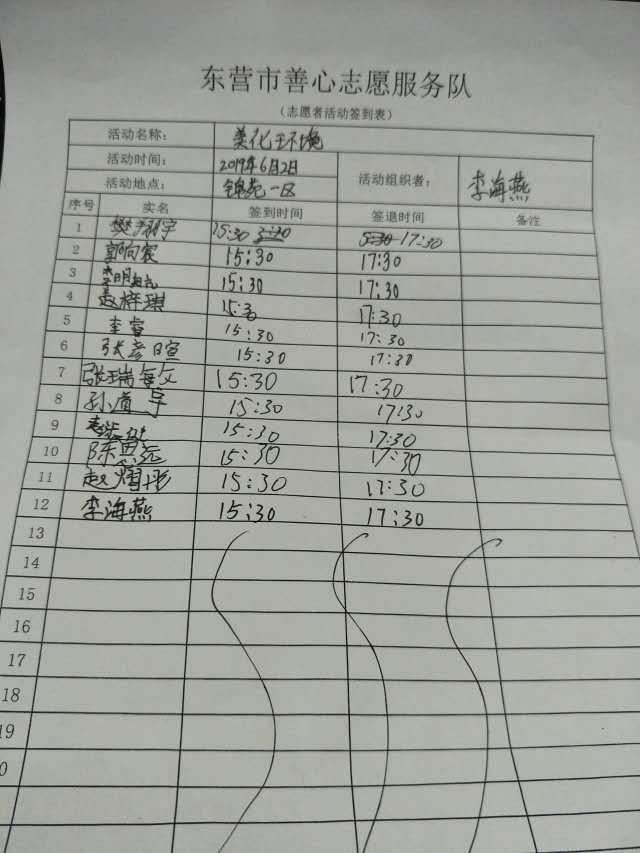 东营市善心志愿服务队
（志愿者活动签到表）
活动名称： 美化环境
活动时间： 2019年6月2日 活动组织者： 李海燕
活动地点： 锦苑一区
序号 实名 签到时间 签退时间 备注
1 15:30 17:30
2 郭向宸 15:30 17:30
3 15:30 17:30
4 赵梓琪 15:30 17:30
5 李睿 15:30 17:30
6 张彦暄 15:30 17:30
7 张瑞 15:30 17:30
8 孙道 15:30 17:30
9 15:30 17:30
10 陈思远 15:30 17:30
11 赵熠彤 15:30 17:30
12 李海燕 15:30 17:30
13
14
15
16
17
18
19
0